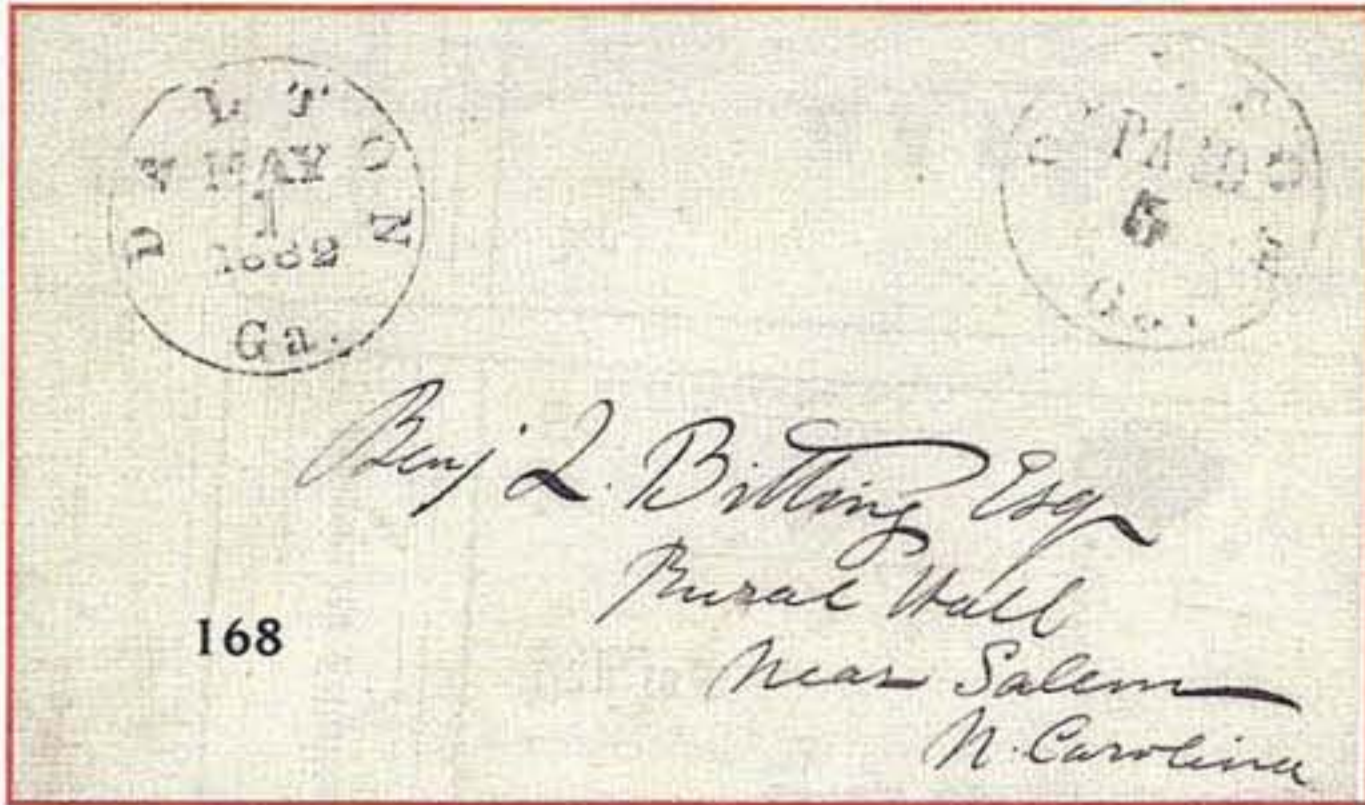 DALTON
MAY
1
1862
Ga.
PAID
5
Ga.
Benj L. Bitting Esq
Rural Hall
Near Salem
N. Carolina
168